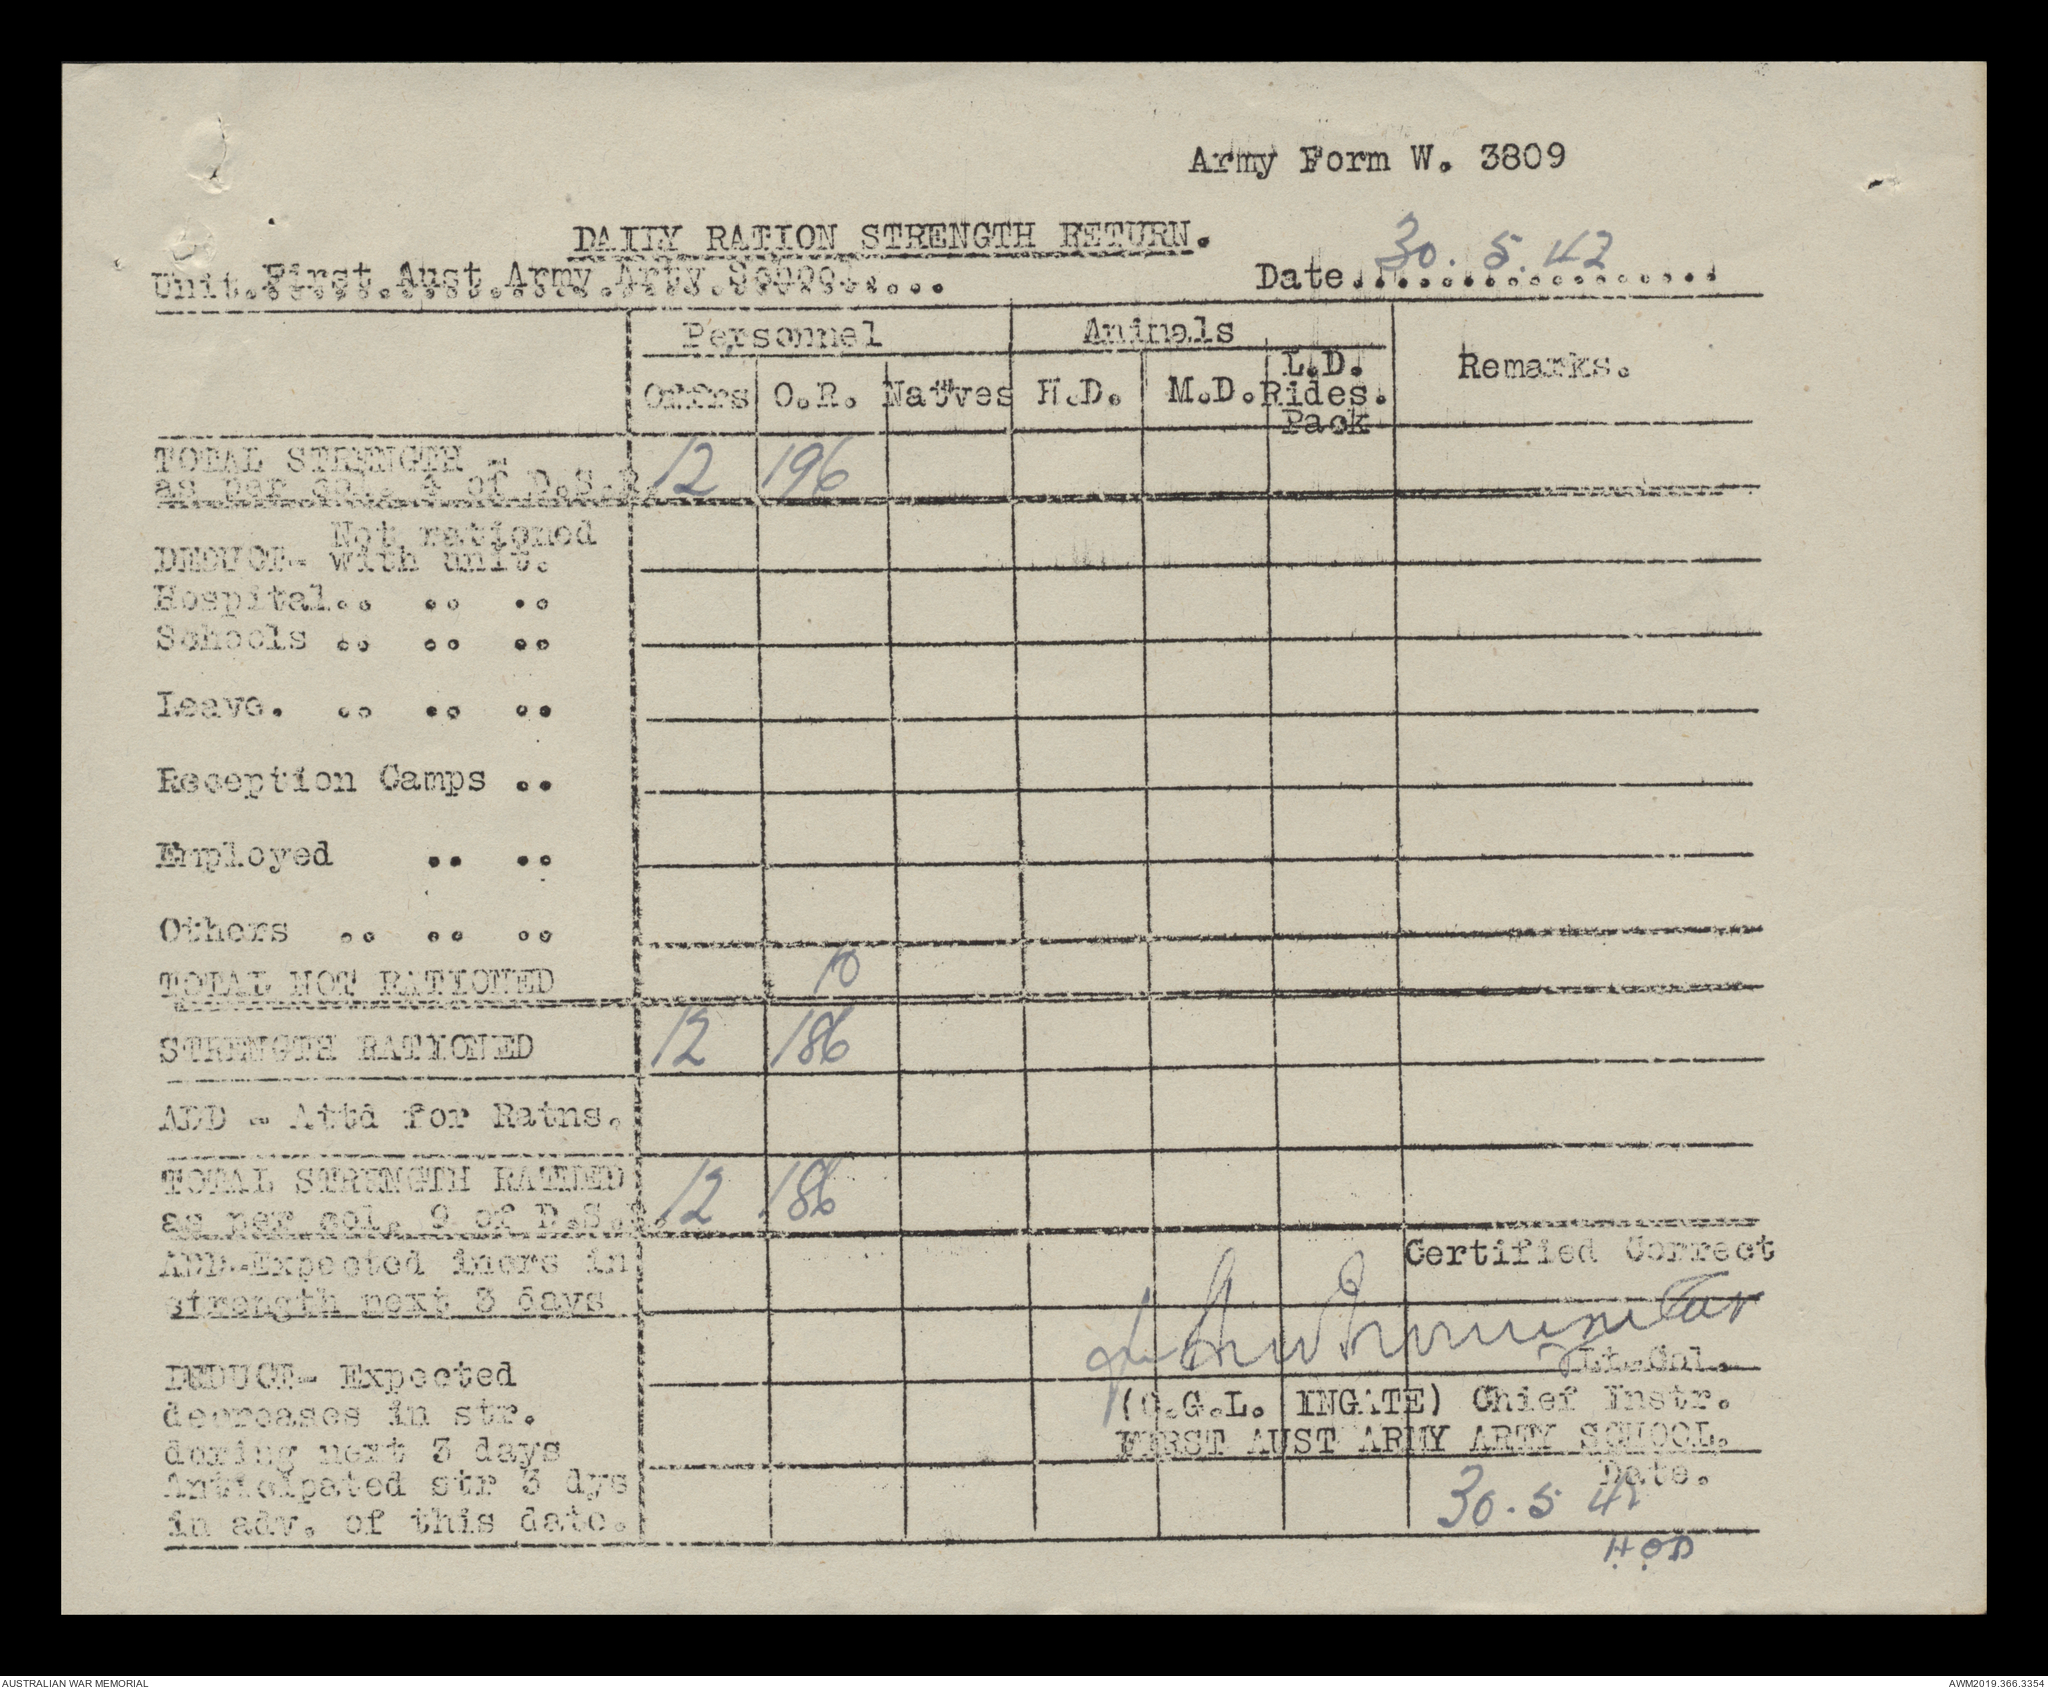 Army Form W. 3809
DAILY RATION STRENGTH RETURN.
Unit.First.Aust.Army.Arty.School.... Date.................
30. 5. 42
Personnel Animals Remarks.
Offrs O.R. Natves H.D. M.D. L.D. Rides. Pack
TOTAL STRENGTH -
as per col. 4 of D.S.R. 12 196
Not rationed
DEDUCE- with unit.
Hospital.. .. ..
Schools .. .. ..
Leave. .. .. ..
Reception Camps ..
Employed .. ..
Others .. .. ..
TOTAL NOT RATIONED 10
STRENGTH RATIONED 12 186
ADD - Attd for Ratns.
TOTAL STRENGTH RATNED
as per col. 9 of D.S.R. 12 186
Certified Correct
ADD-Expected incrs in
strength next 3 days
Lt-Col.
DEDUCE- Expected
(C.G.L. INGATE) Chief Instr.
decreases in str.
FIRST AUST ARMY ARTY SCHOOL.
doring next 3 days
Date.
Anticipated str 3 dys
30. 5 42
in adv. of this date.
H.Q.D
AUSTRALIAN WAR MEMORIAL AWM2019.366.3354